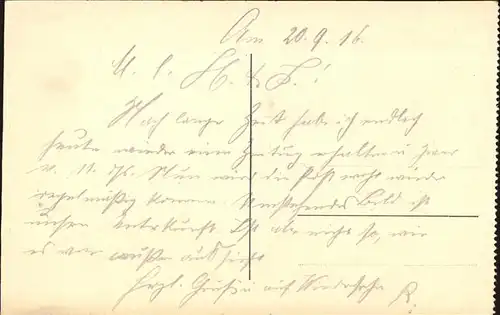 Am 20.9.16.
M. l. H. & F.!
Nach langer Zeit habe ich endlich
heute wieder eine Zeitung erhalten u. zwar
v. 11. ds. Nun wird die Post wohl wieder
regelmäßig kommen. Umstehendes Bild ist
unsere Unterkunft. Ist aber nicht so, wie
es von außen aussieht.
Herzl. Grüße auf Wiedersehn
R.